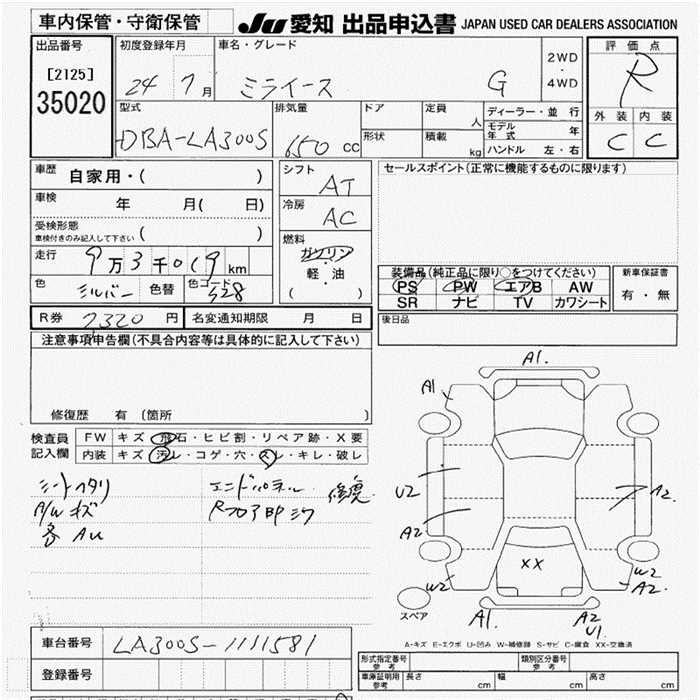 車内保管・守衛保管
JU 愛知 出品申込書 JAPAN USED CAR DEALERS ASSOCIATION
出品番号
[2125]
35020
初度登録年月
24 7月
車名・グレード
ミライース G
2WD
・
4WD
評価点
R
外装 内装
C C
型式
DBA-LA300S
排気量
650 cc
ドア
形状
定員
人
積載
kg
ディーラー・並行
モデル年式 年
ハンドル 左・右
車歴
自家用・( )
車検
年 月( 日)
受検形態
車検付きのみ記入して下さい ( )
走行
9万3千019km
色
シルバー
色替
色コード
S28
シフト
AT
冷房
AC
燃料
ガソリン
・
軽・油
( )
セールスポイント(正常に機能するものに限ります)
装備品(純正品に限り○をつけてください)
PS PW エアB AW
SR ナビ TV カワシート
新車保証書
有・無
R券 7320円
名変通知期限 月 日
後日品
注意事項申告欄(不具合内容等は具体的に記入して下さい)
修復歴 有 (箇所 )
検査員記入欄
FW キズ・飛石・ヒビ割・リペア跡・X要
内装 キズ・汚レ・コゲ・穴・スレ・キレ・破レ
シートヘタリ
A/W キズ
各 AU
エンドパネル 修復
Rフロア
A1.
A1
U2
A2
W2
A2.
W2
A2.
XX
A1.
A2
U1.
スペア
A-キズ E-エクボ U-凹み W-補修跡 S-サビ C-腐食 XX-交換済
車台番号
LA300S-1111581
登録番号
形式指定番号 参考
類別区分番号 参考
車庫証明用 参考
長さ cm
幅 cm
高さ cm